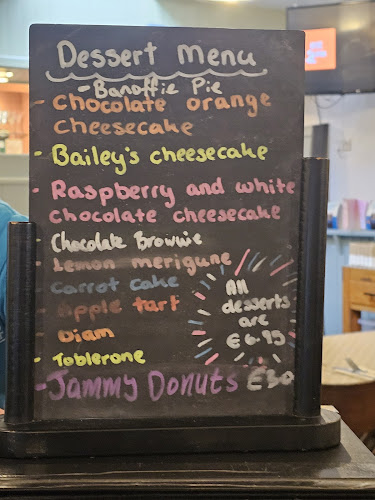 Dessert Menu
- Banoffie Pie
- Chocolate orange
cheesecake
- Bailey's cheesecake
- Raspberry and white
chocolate cheesecake
- Chocolate Brownie
- Lemon merigune
- Carrot cake
- Apple tart
- Diam
- Toblerone
- Jammy Donuts €3.50
All
desserts
are
€6.95